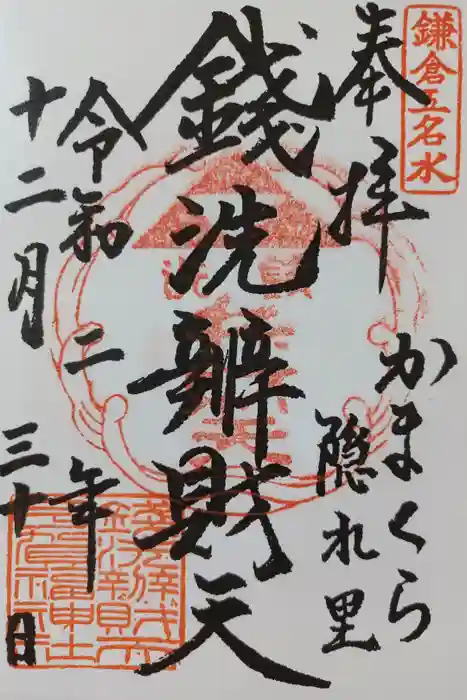 鎌倉五名水
奉拝
かまくら
隠れ里
銭洗辨財天
令和二年
十二月三十日